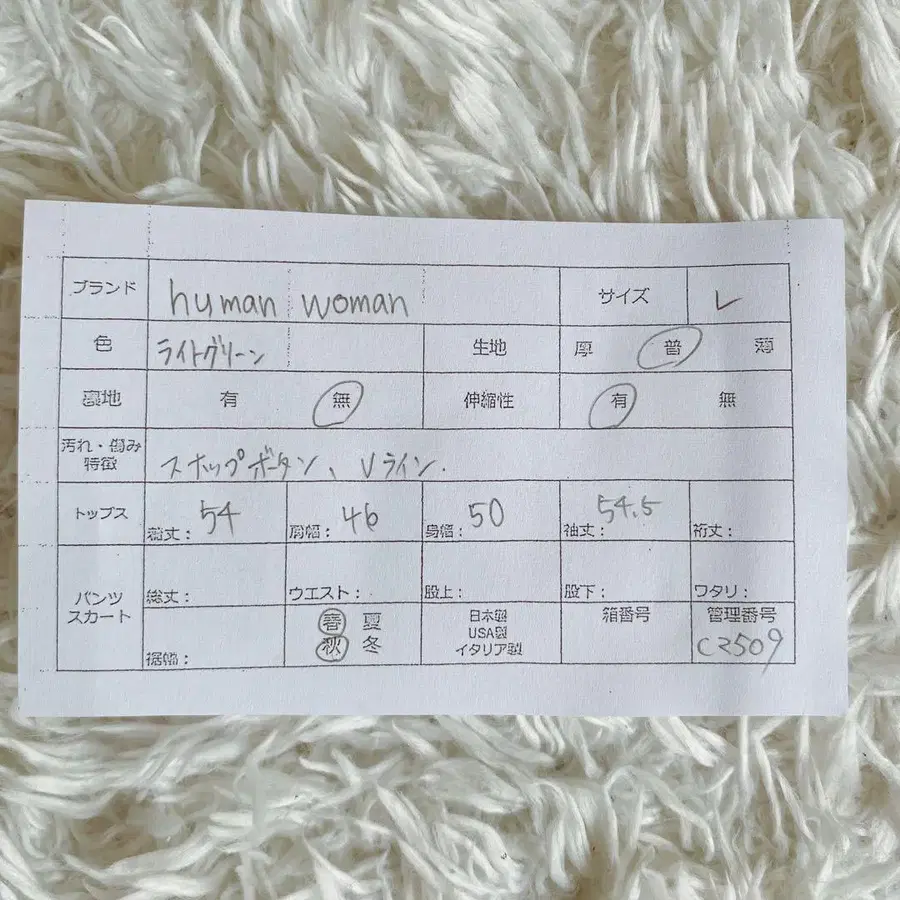 ブランド human woman サイズ L
色 ライトグリーン 生地 厚 普 薄
裏地 有 無 伸縮性 有 無
汚れ・傷み
特徴 スナップボタン、Vライン.
トップス 総丈: 54 肩幅: 46 身幅: 50 袖丈: 54.5 裄丈:
パンツ
スカート 総丈: ウエスト: 股上: 股下: ワタリ:
裾幅: 春 夏
秋 冬
日本製
USA製
イタリア製
箱番号 管理番号
C2509